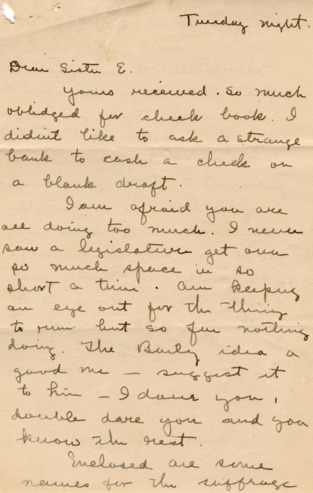 Tuesday night.
Dear Sister E.
Yours received. So much
obliged for check book. I
didn't like to ask a strange
bank to cash a check on
a blank draft.
I am afraid you are
all doing too much. I never
saw a legislature get over
so much space in so
short a time. Am keeping
an eye out for the thing
to run but so far nothing
doing. The Baily idea a
good one — suggest it
to him — I dare you,
double dare you and you
know the rest.
Inclosed are some
names for the suffrage